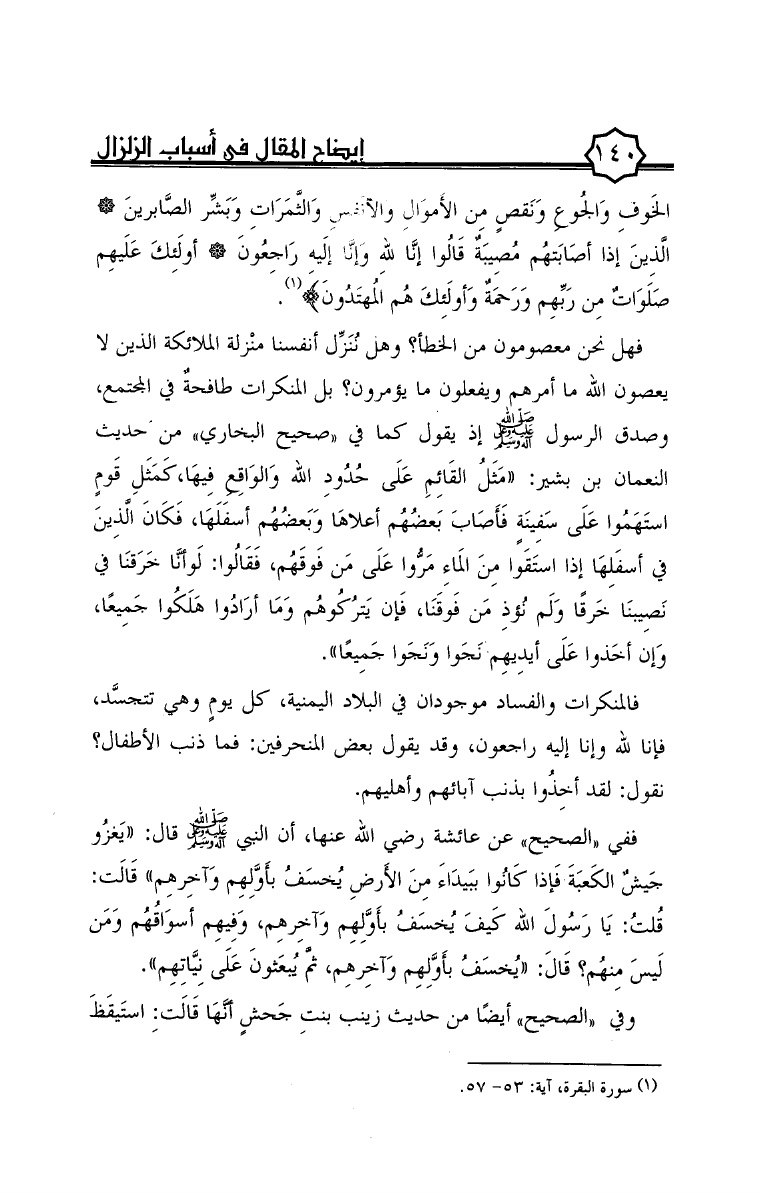 ١٤٠ إيضاح المقال في أسباب الزلزال
الخَوفِ وَالجُوعِ وَنَقصٍ مِن الأَموَالِ وَالأنفُسِ وَالثَّمَرَاتِ وَبَشِّرِ الصَّابِرِينَ ۞
الَّذِينَ إذا أصَابَتهُم مُصِيبَةٌ قَالُوا إنَّا لله وَإنَّا إلَيهِ رَاجِعُونَ ۞ أولَئِكَ عَلَيهِم
صَلَوَاتٌ مِن رَبِّهِم وَرَحَمَةٌ وَأولَئِكَ هُم الُمهتَدُونَ﴾(١).
فهل نحن معصومون من الخطأ؟ وهل نُنَزِّل أنفسنا منْزلة الملائكة الذين لا
يعصون الله ما أمرهم ويفعلون ما يؤمرون؟ بل المنكرات طافحةٌ في المجتمع،
وصدق الرسول ﷺ إذ يقول كما في «صحيح البخاري» من حديث
النعمان بن بشير: «مَثَلُ القَائِمِ عَلَى حُدُودِ الله وَالوَاقِعِ فِيهَا، كَمَثَلِ قَومٍ
استَهَمُوا عَلَى سَفِينَةٍ فَأَصَابَ بَعضُهُم أعلاهَا وَبَعضُهُم أسفَلَهَا، فَكَانَ الَّذِينَ
في أسفَلِهَا إذا استَقَوا مِنَ الَماءِ مَرُّوا عَلَى مَن فَوقَهُم، فَقَالُوا: لَوأنَّا خَرَقنَا فِي
نَصِيبِنَا خَرقًا وَلَم نُؤذِ مَن فَوقَنَا، فَإن يَترُكُوهُم وَمَا أرَادُوا هَلَكُوا جَمِيعًا،
وَإن أخَذوا عَلَى أيدِيهِم نَجَوا وَنَجَوا جَمِيعًا».
فالمنكرات والفساد موجودان في البلاد اليمنية، كل يومٍ وهي تتجسَّد،
فإنا لله وإنا إليه راجعون، وقد يقول بعض المنحرفين: فما ذنب الأطفال؟
نقول: لقد أخِذُوا بذنب آبائهم وأهليهم.
ففي «الصحيح» عن عائشة رضي الله عنها، أن النبي ﷺ قال: «يَغزُو
جَيشٌ الكَعبَةَ فَإذا كَانُوا بِبَيدَاءَ مِنَ الأَرضِ يُخسَفُ بأوَّلِهِم وَآخِرِهِم» قَالَت:
قُلتُ: يَا رَسُولَ الله كَيفَ يُخسَفُ بأوَّلِهِم وَآخِرِهِم، وَفِيهِم أسوَاقُهُم وَمَن
لَيسَ مِنهُم؟ قَالَ: «يُخسَفُ بأوَّلِهِم وَآخِرِهِم، ثُمَّ يُبعَثونَ عَلَى نِيَّاتِهِم».
وفي «الصحيح» أيضًا من حديث زينب بنتِ جَحشٍ أنَّهَا قَالَت: استَيقَظَ
(١) سورة البقرة، آية: ٥٣- ٥٧.